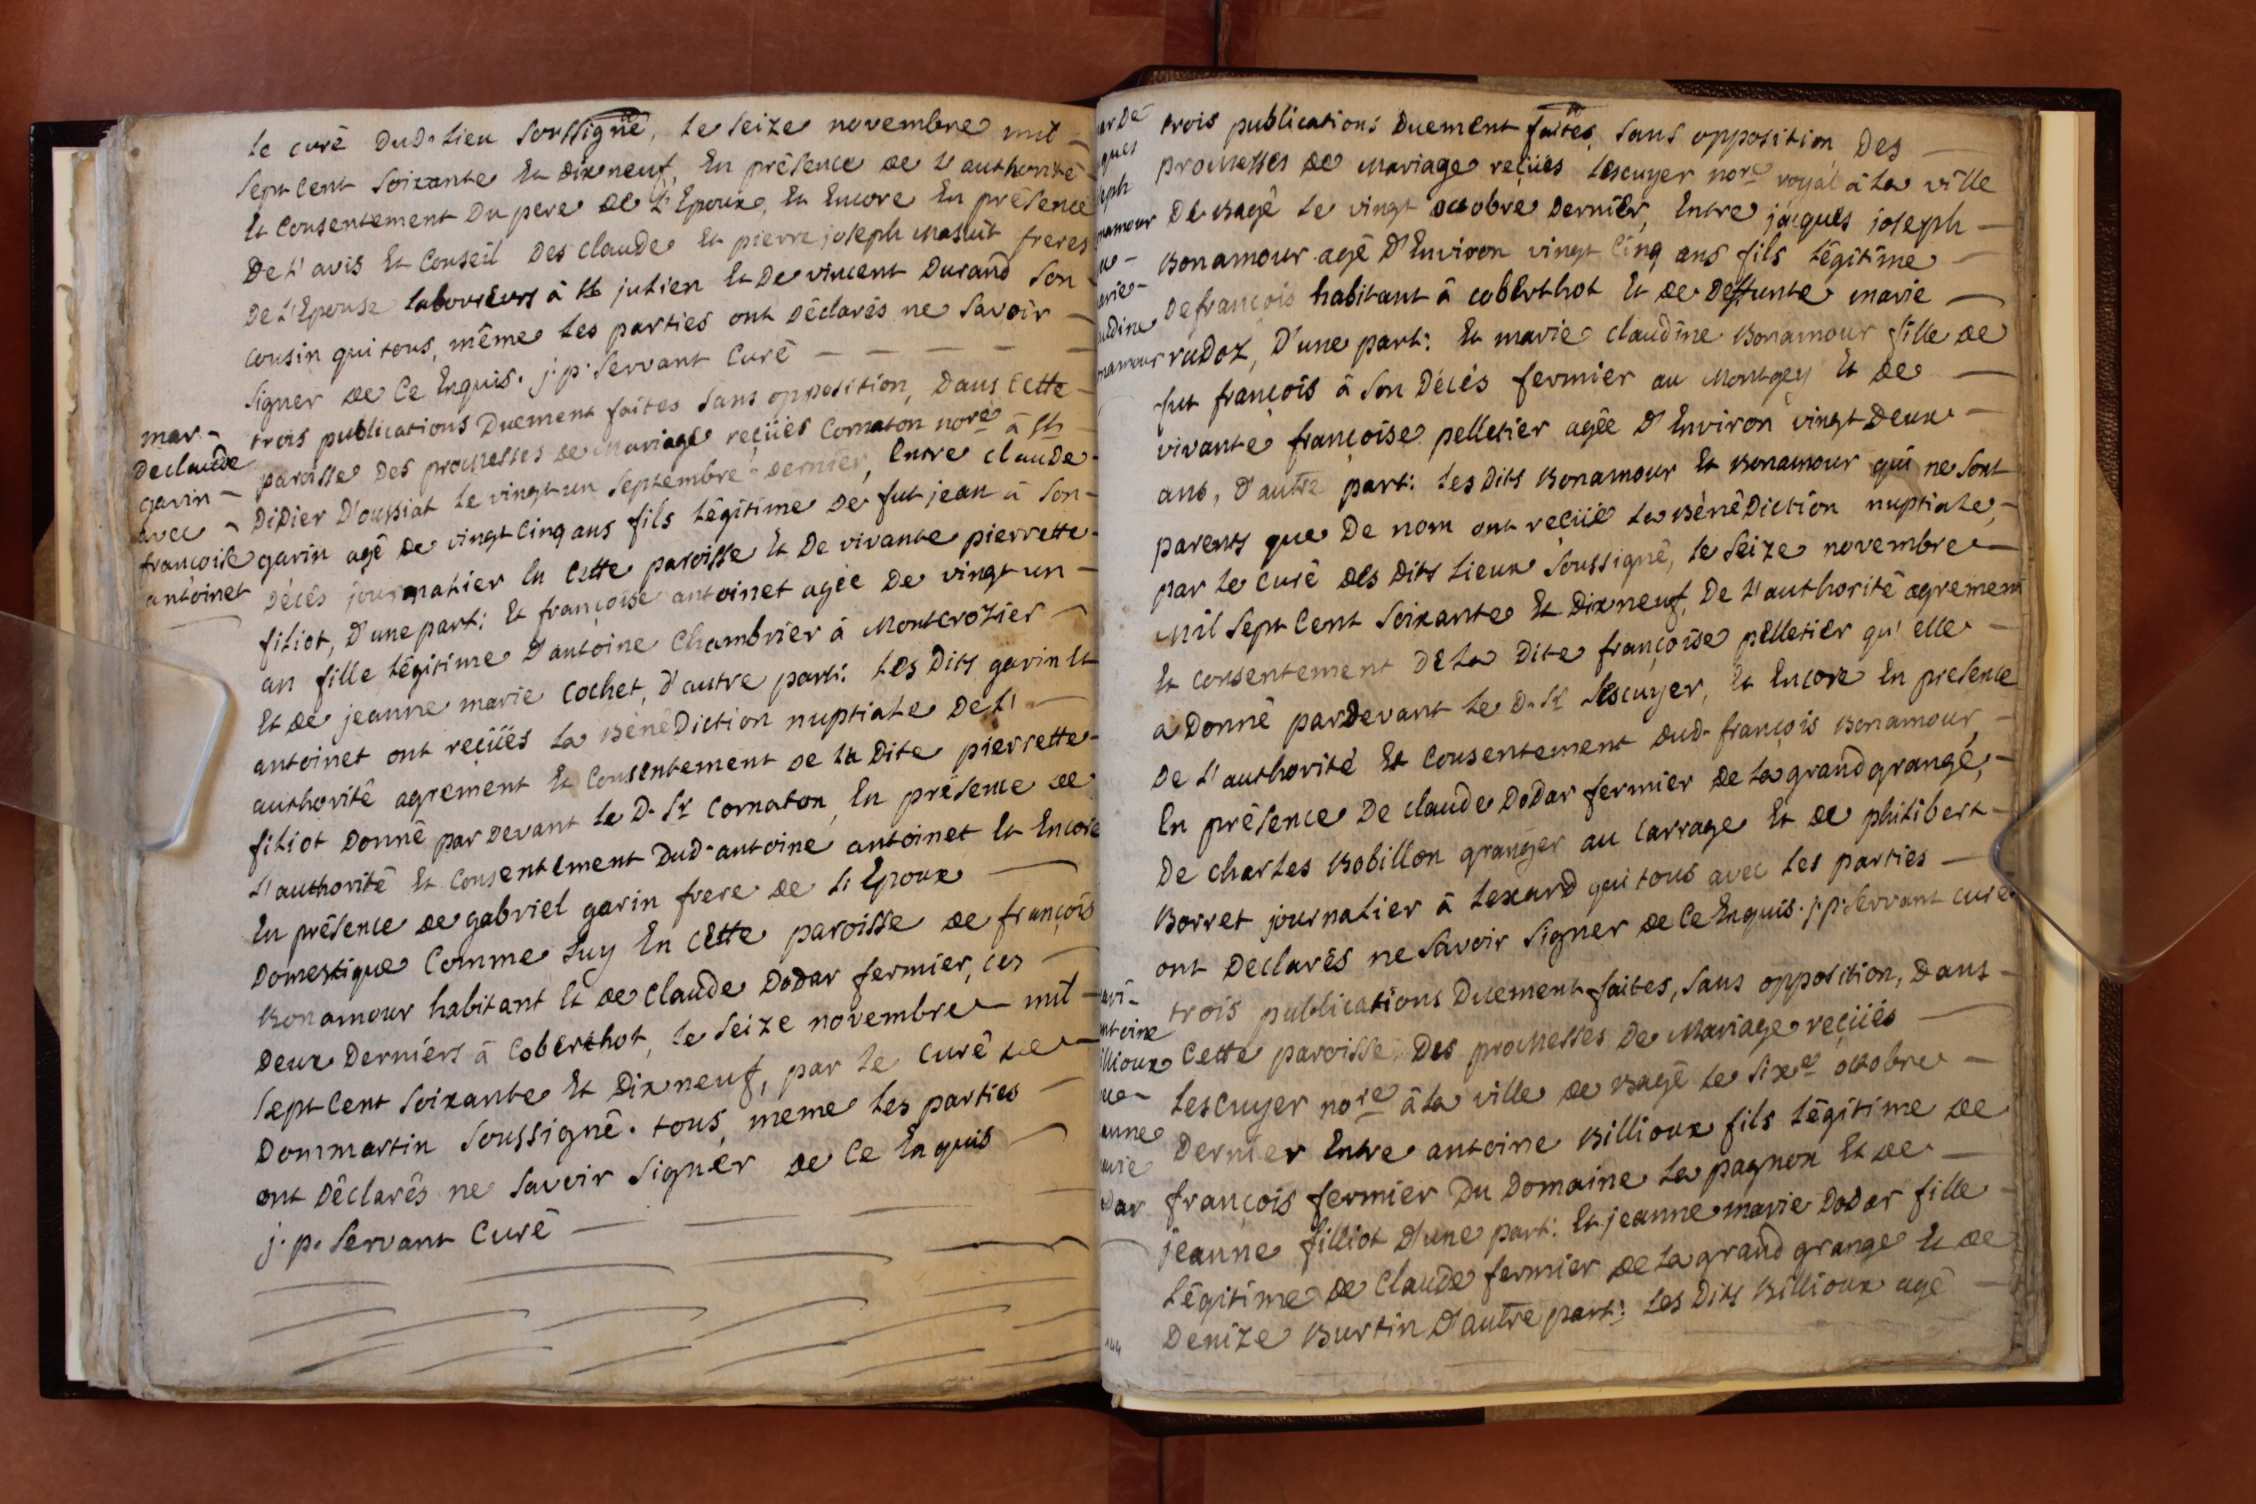 le curé dud. lieu soussigné, le seize novembre mil
sept cent soixante et dix neuf, en présence de l'authorité
et consentement du pere de l'epoux, et encore en présence
de l'avis et conseil des claude et pierre joseph masuit freres
de l'epouse laboureurs à st julien et de vincent durand son
cousin qui tous, même les parties ont déclarés ne savoir
signer de ce enquis. j. p. servant curé
mar.
de claude
garin
avec
françoise
antoinet
trois publications duement faites sans opposition, dans cette
paroisse des promesses de mariage reçües cornaton nore à st
didier d'oussiat le vingt un septembre dernier, entre claude
garin agé de vingt cinq ans fils légitime de fut jean à son
décés journalier en cette paroisse et de vivante pierrette
filiot, d'une part: et françoise antoinet agée de vingt un
an fille légitime d'antoine chambrier à montcrozier
et de jeanne marie cochet, d'autre part: les dits garin et
antoinet ont reçüés la bénédiction nuptiale de l'
authorité agrement et consentement de la dite pierrette
filiot donné par devant le d. sr cornaton, en présence de
l'authorité et consentement dud. antoine antoinet et encore
en présence de gabriel garin frere de l'epoux
domestique comme luy en cette paroisse de françois
bonamour habitant et de claude dodar fermier, ces
deux derniers à coberthot, le seize novembre mil
sept cent soixante et dix neuf, par le curé de
dommartin soussigné. tous, meme les parties
ont déclarés ne savoir signer de ce enquis
j. p. servant curé
ar de
ques
seph
namour
arie
udine
namour
trois publications duement faites, sans opposition, des
promesses de mariage reçües lescuyer nore royal à la ville
de bagé le vingt octobre dernier, entre jacques joseph
bonamour agé d'environ vingt cinq ans fils légitime
de françois habitant à coberthot et de deffunte marie
rudoz, d'une part: et marie claudine bonamour fille de
fut françois à son décés fermier au montgey et de
vivante françoise pelletier agée d'environ vingt deux
ans, d'autre part: les dits bonamour et bonamour qui ne sont
parents que de nom ont reçüé la bénédiction nuptiale,
par le curé des dits lieux soussigné, le seize novembre
mil sept cent soixante et dix neuf, de l'authorité agrement
et consentement de la dite françoise pelletier qu'elle
a donné pardevant le d. sr lescuyer, et encore en presence
de l'authorité et consentement dud. françois bonamour,
en présence de claude dodar fermier de la grand grange,
de charles bobillon granger au carrage et de philibert
borret journalier à lexard qui tous avec les parties
ont declarés ne savoir signer de ce enquis. j. p. servant curé
ntoine
llioux
anne
arie
dar
trois publications duement faites, sans opposition, dans
cette paroisse des promesses de mariage reçüés
lescuyer nore à la ville de bagé le sixe octobre
dernier entre antoine billioux fils légitime de
françois fermier du domaine la pagnon et de
jeanne filliot d'une part: et jeanne marie dodar fille
légitime de claude fermier de la grand grange et de
denize burtin d'autre part: les dits billioux agé